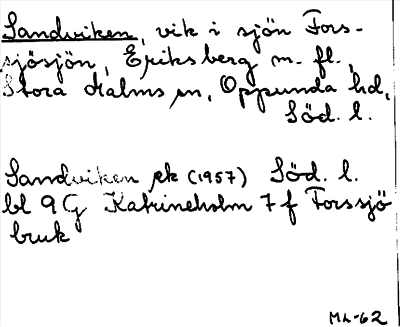 Sandviken, vik i sjön Fors-
sjösjön, Eriksberg m. fl.,
Stora Malms sn, Oppunda hd,
Söd. l.
Sandviken ek (1957) Söd. l.
bl 9G Katrineholm 7f Forssjö
bruk
ML-62